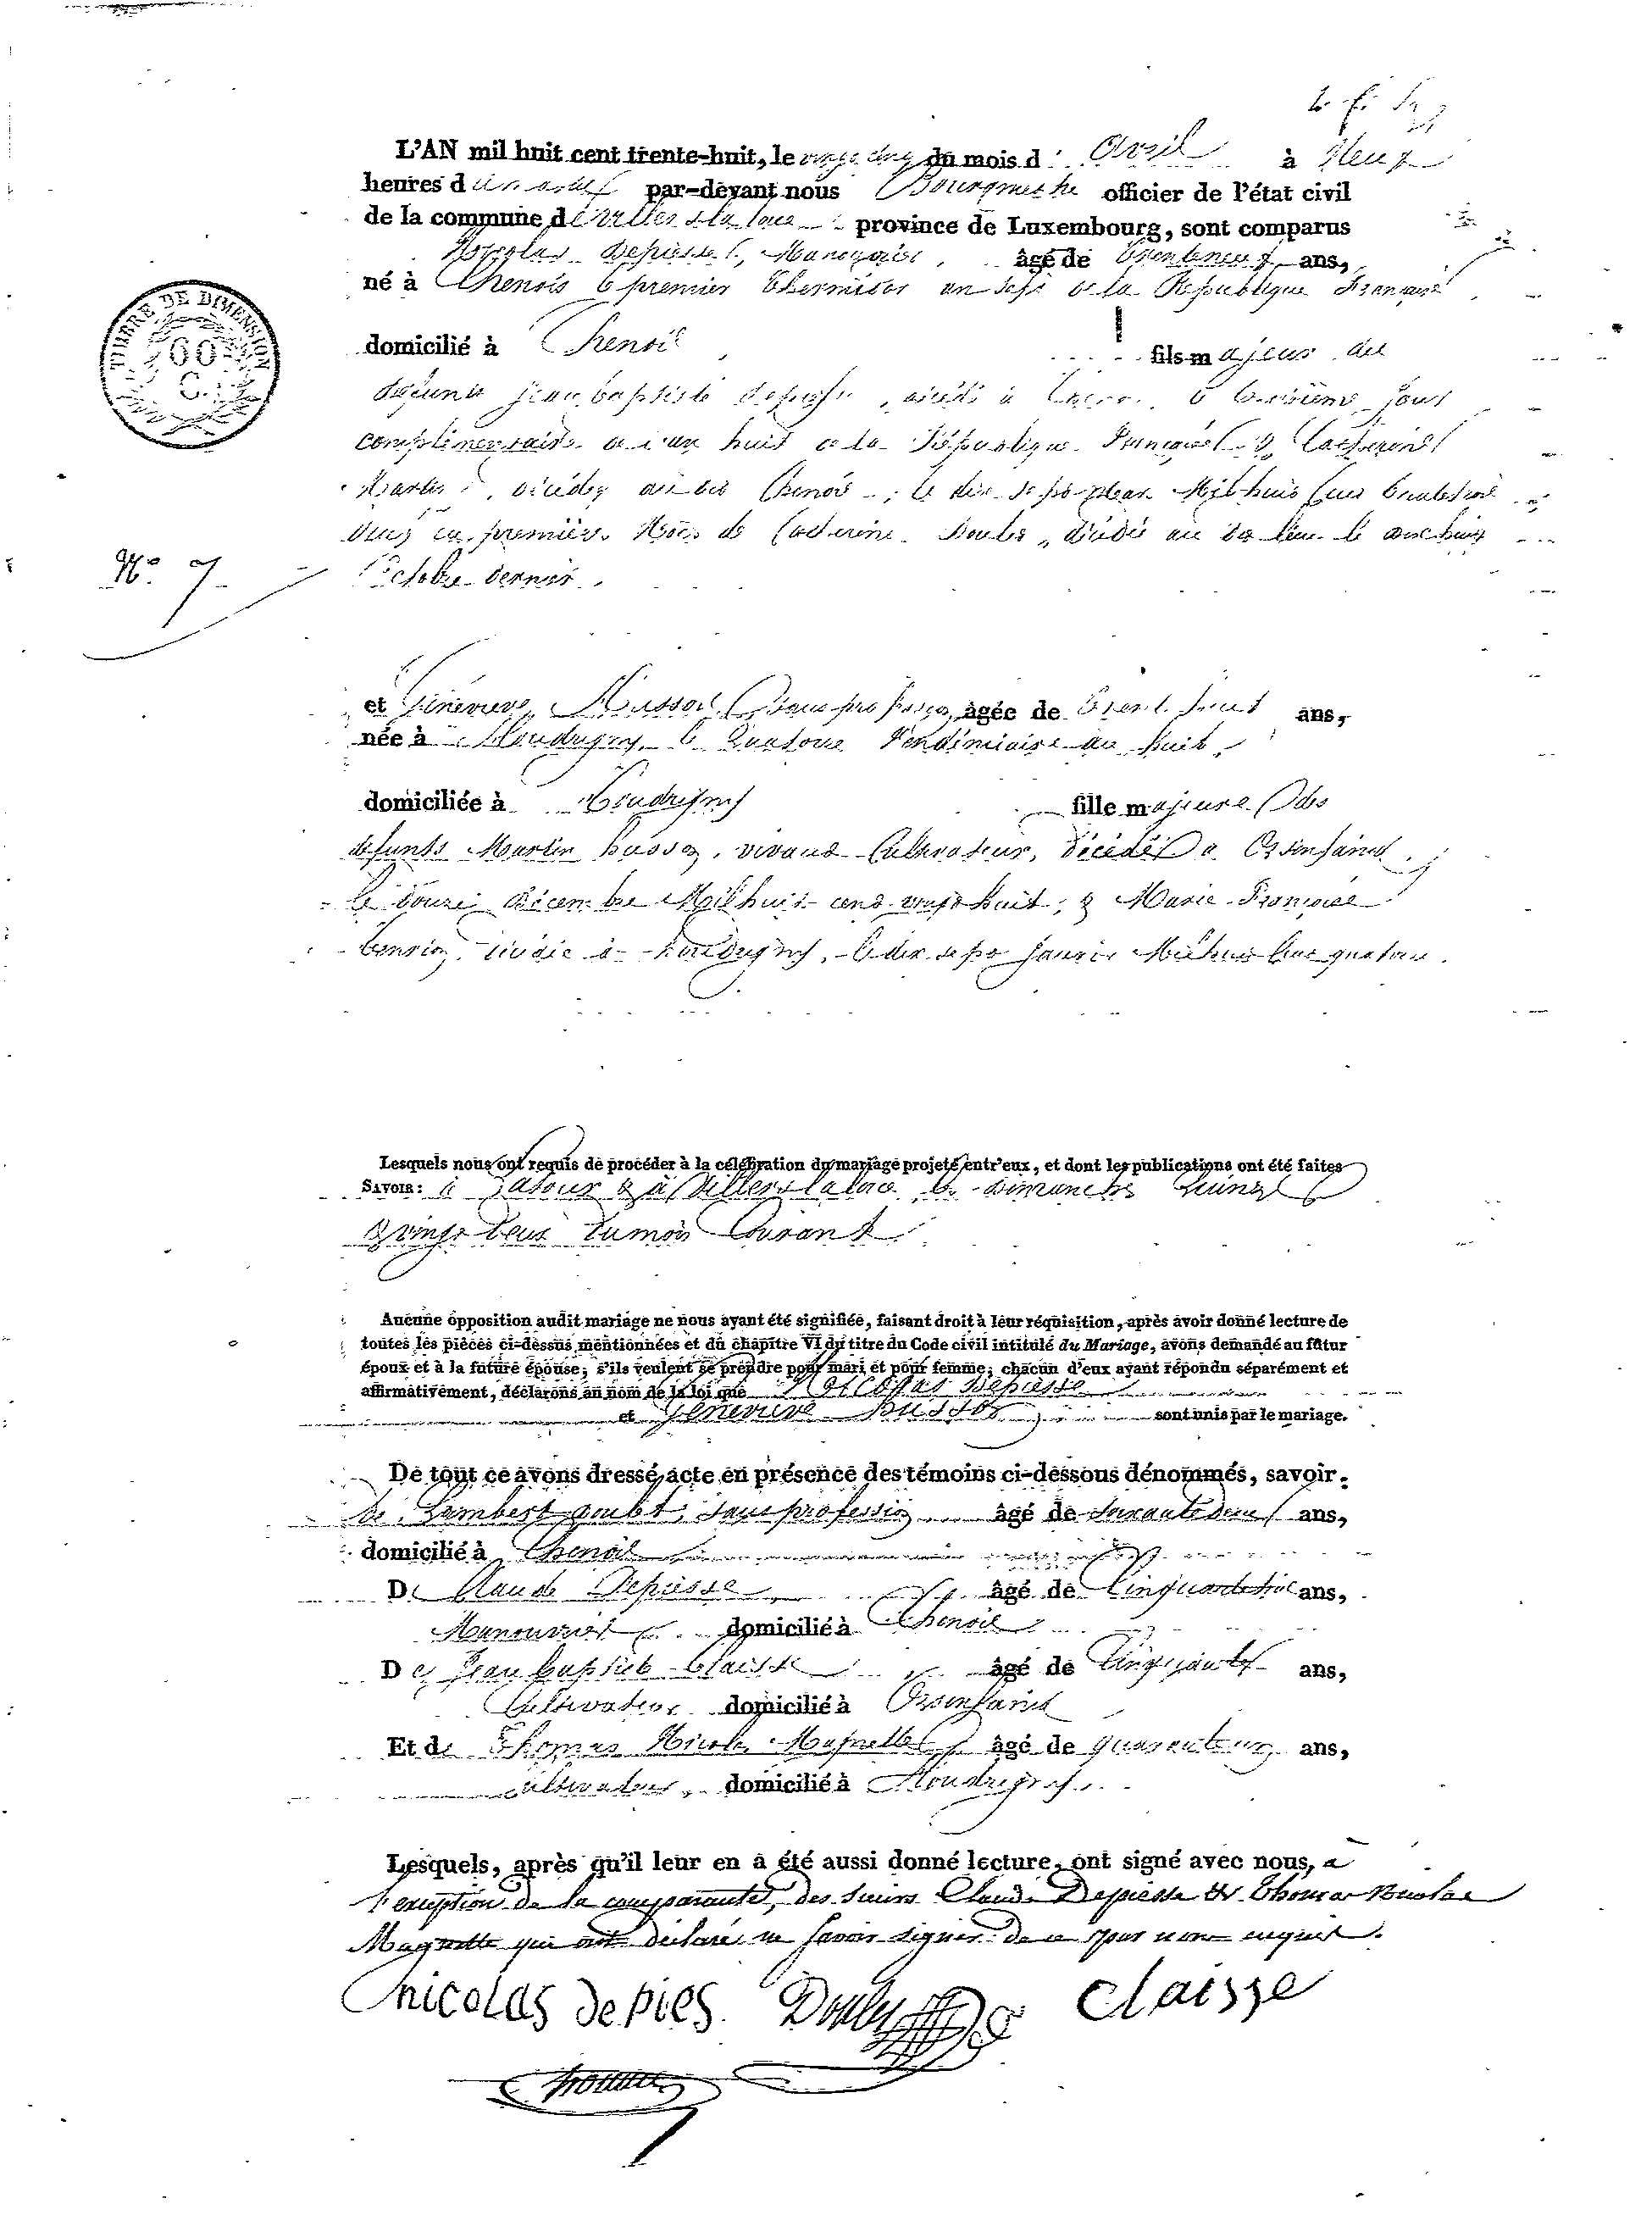 L'AN mil huit cent trente-huit, le vingt cinq du mois d' Avril à Neuf
heures du matin par-devant nous Bourgmestre officier de l'état civil
de la commune de Villers-la-loue province de Luxembourg, sont comparus
Nicolas Depiesse, Manouvrier, âgé de trente neuf ans,
né à Chenois le premier Thermidor an sept de la République Française
TIMBRE DE DIMENSION
60
C.
domicilié à Chenois fils majeur des
défunts jean baptiste depiesse, décédé à le troisième jour
complémentaire de l'an huit de la République Française & Catherine
décédée audit Chenois, le dix sept Mil huit cent
Veuf en premières Noces de Catherine Doulet, décédée au dit lieu le dix huit
N.° 7
Octobre dernier.
et Génevieve Husson, sans profession, âgée de trente huit ans,
née à Houdrigny le Quatorze Vendémiaire an huit,
domiciliée à Houdrigny fille majeure des
défunts Martin husson, vivant Cultivateur, décédé à
le douze décembre Mil huit cent vingt huit, & Marie Françoise
décédée à Houdrigny, le dix sept janvier Mil huit cent quatorze.
Lesquels nous ont requis de procéder à la célébration du mariage projeté entr'eux, et dont les publications ont été faites
SAVOIR: à Latour & à Villers la loue les dimanches Quinze
& vingt deux du mois Courant
Aucune opposition audit mariage ne nous ayant été signifiée, faisant droit à leur réquisition, après avoir donné lecture de
toutes les pièces ci-dessus mentionnées et du chapitre VI du titre du Code civil intitulé du Mariage, avons demandé au futur
époux et à la future épouse, s'ils veulent se prendre pour mari et pour femme; chacun d'eux ayant répondu séparément et
affirmativement, déclarons au nom de la loi que Nicolas Depiesse
et Génevieve Husson sont unis par le mariage.
De tout ce avons dressé acte en présence des témoins ci-dessous dénommés, savoir.
de Lambert Doulet, sans profession âgé de soixante deux ans,
domicilié à Chenois
De Claude Depiesse âgé de Cinquante ans,
Manouvrier domicilié à Chenois
De Jean baptiste Claisse âgé de Cinquante ans,
Cultivateur domicilié à
Et de Thomas Nicolas Magnette âgé de quarante ans,
cultivateur, domicilié à Houdrigny.
Lesquels, après qu'il leur en a été aussi donné lecture, ont signé avec nous, à
l'exception de la comparante, des sieurs Claude Depiesse & Thomas Nicolas
Magnette qui ont déclaré ne savoir signer de ce par nous requis.
nicolas depies. Doulet claisse